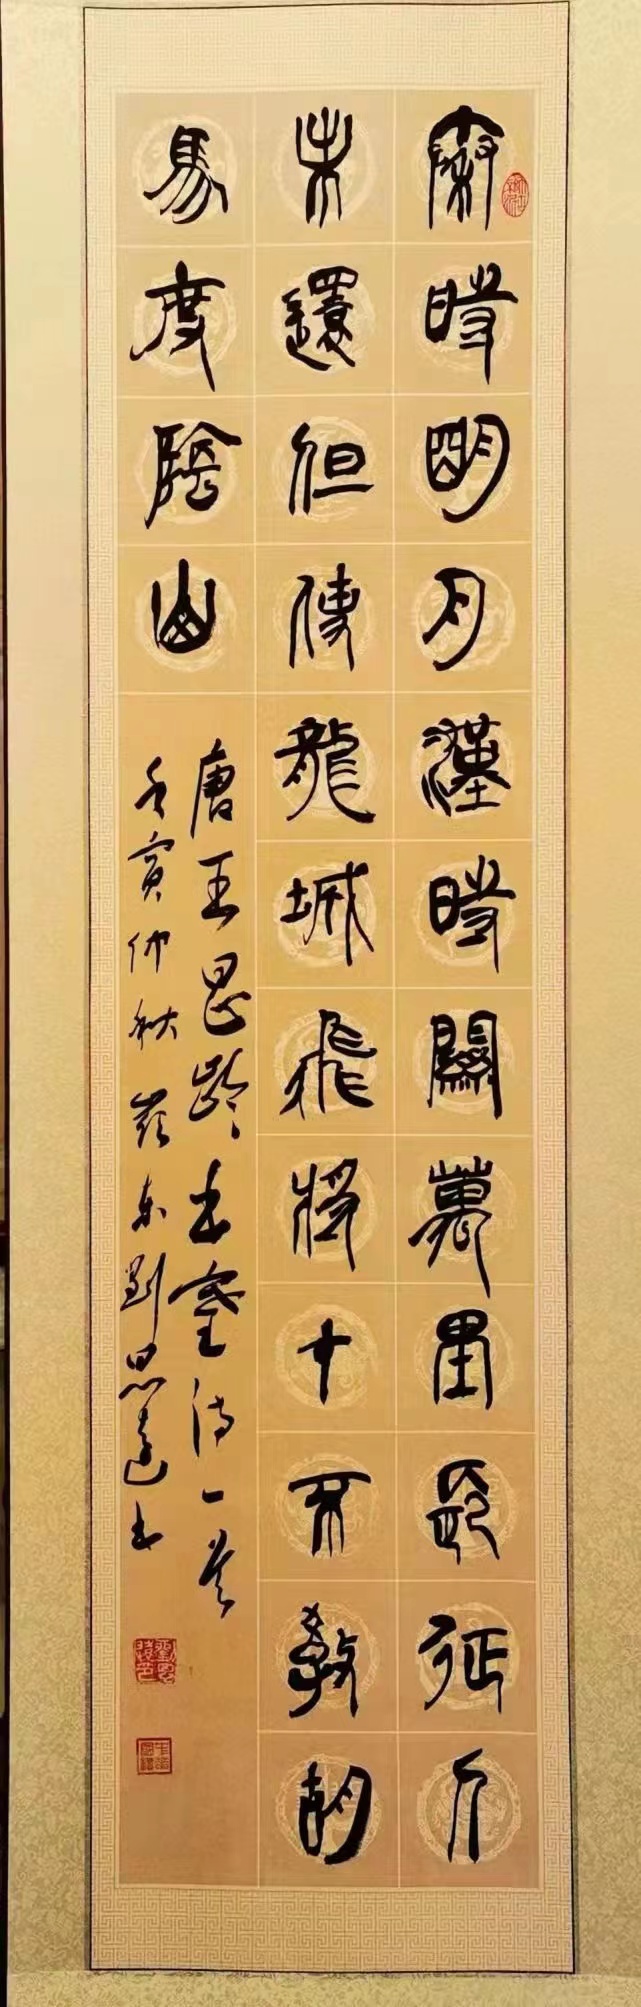 秦時明月漢時關萬里長征人
未還但使龍城飛將在不教胡
馬度陰山
唐王昌齡出塞詩一首
壬寅仲秋嶺東劉思達書